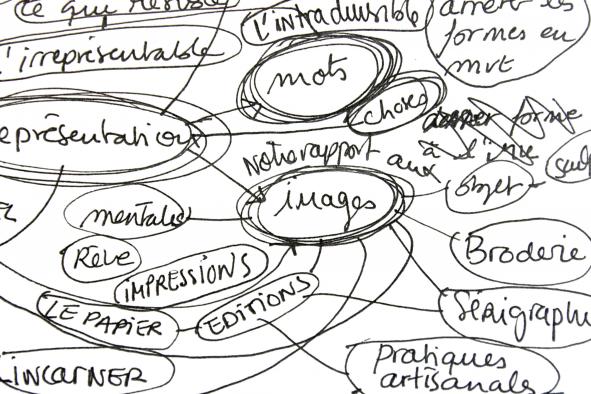 ce qui résiste
l'irreprésentable
L'intraduisible
arrêter les
formes en
mvt
mots
choses
eprésentation
donner forme
à l'inu
Notre rapport aux
objet
sculp
images
mentales
Rêve
IMPRESSIONS
Broderie
LE PAPIER
EDITIONS
Sérigraphi
INCARNER
pratiques
artisanales